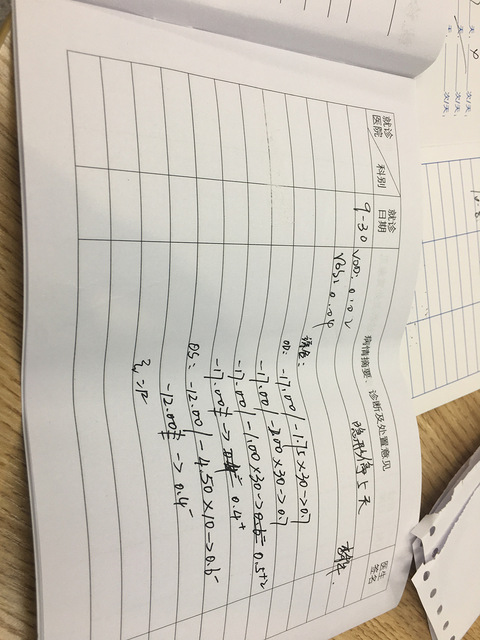 就诊医院
科别
就诊日期
病情摘要、诊断及处置意见
医生签名
9-30
VOD: 0.02
隐形停5天
VOS: 0.04
OD: -17.00/-1.75×30->0.7
-17.00/-1.00×30->0.7
-17.00/-1.00×30->0.5+2
-17.00 -> 0.4+
OS: -12.00/-4.50×10->0.6-
-12.00 -> 0.4-
次/天.
次/天.
次/天.